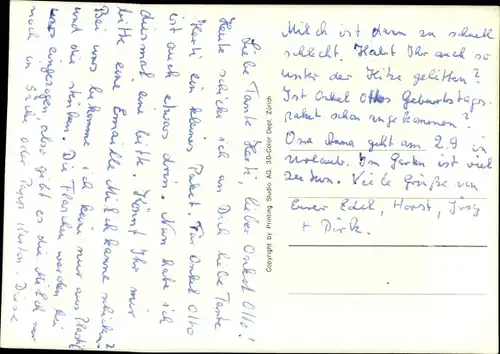 Liebe Tante Herti, lieber Onkel Otto!
Heute schicke ich an Dich liebe Tante
Herti ein kleines Paket. Für Onkel Otto
ist auch etwas drin. Nun habe ich
diesmal eine bitte. Könnt Ihr mir
bitte eine Emaille Milchkanne schicken?
Bei uns bekomme ich keine nur aus Plastik
und die stinken. Die Flaschen werden bei
uns eingezogen also gibt es die Milch nur
noch in oder Papp. Diese
Milch ist dann zu schnell
schlecht. Habt Ihr auch so
unter der Hitze gelitten?
Ist Onkel Ottos Geburtstags-
paket schon angekommen?
Oma Anna geht am 2.9 in
Urlaub. Im Garten ist viel
zu tun. Viele Grüße von
Eurer Edel, Horst, Jörg
+ Dirk.
Copyright by Printing Studio AG, 3D-Color Dept. Zürich